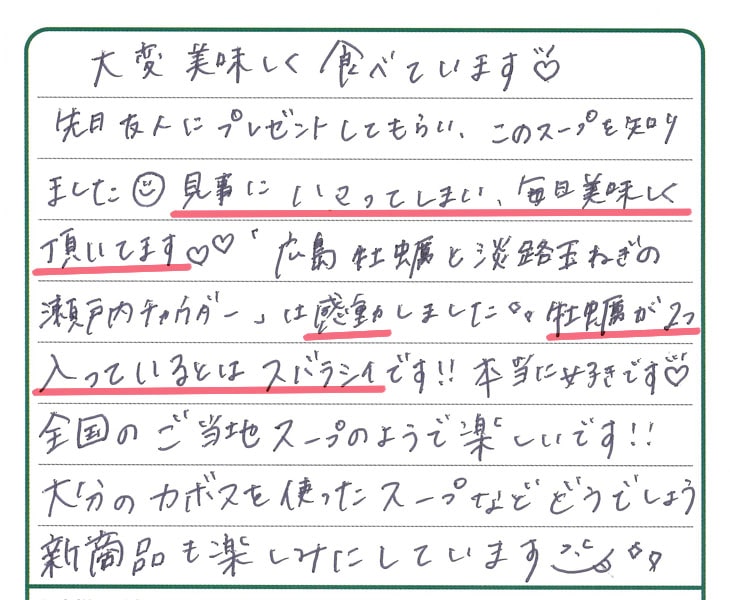 大変美味しく食べています♡
先日友人にプレゼントしてもらい、このスープを知り
ました☺見事にハマってしまい、毎日美味しく
頂いてます♡♡「広島牡蠣と淡路玉ねぎの
瀬戸内チャウダー」は感動しました。牡蠣が2つ
入っているとはスバラシイです!!本当に好きです♡
全国のご当地スープのようで楽しいです!!
大分のカボスを使ったスープなどどうでしょう
新商品も楽しみにしています